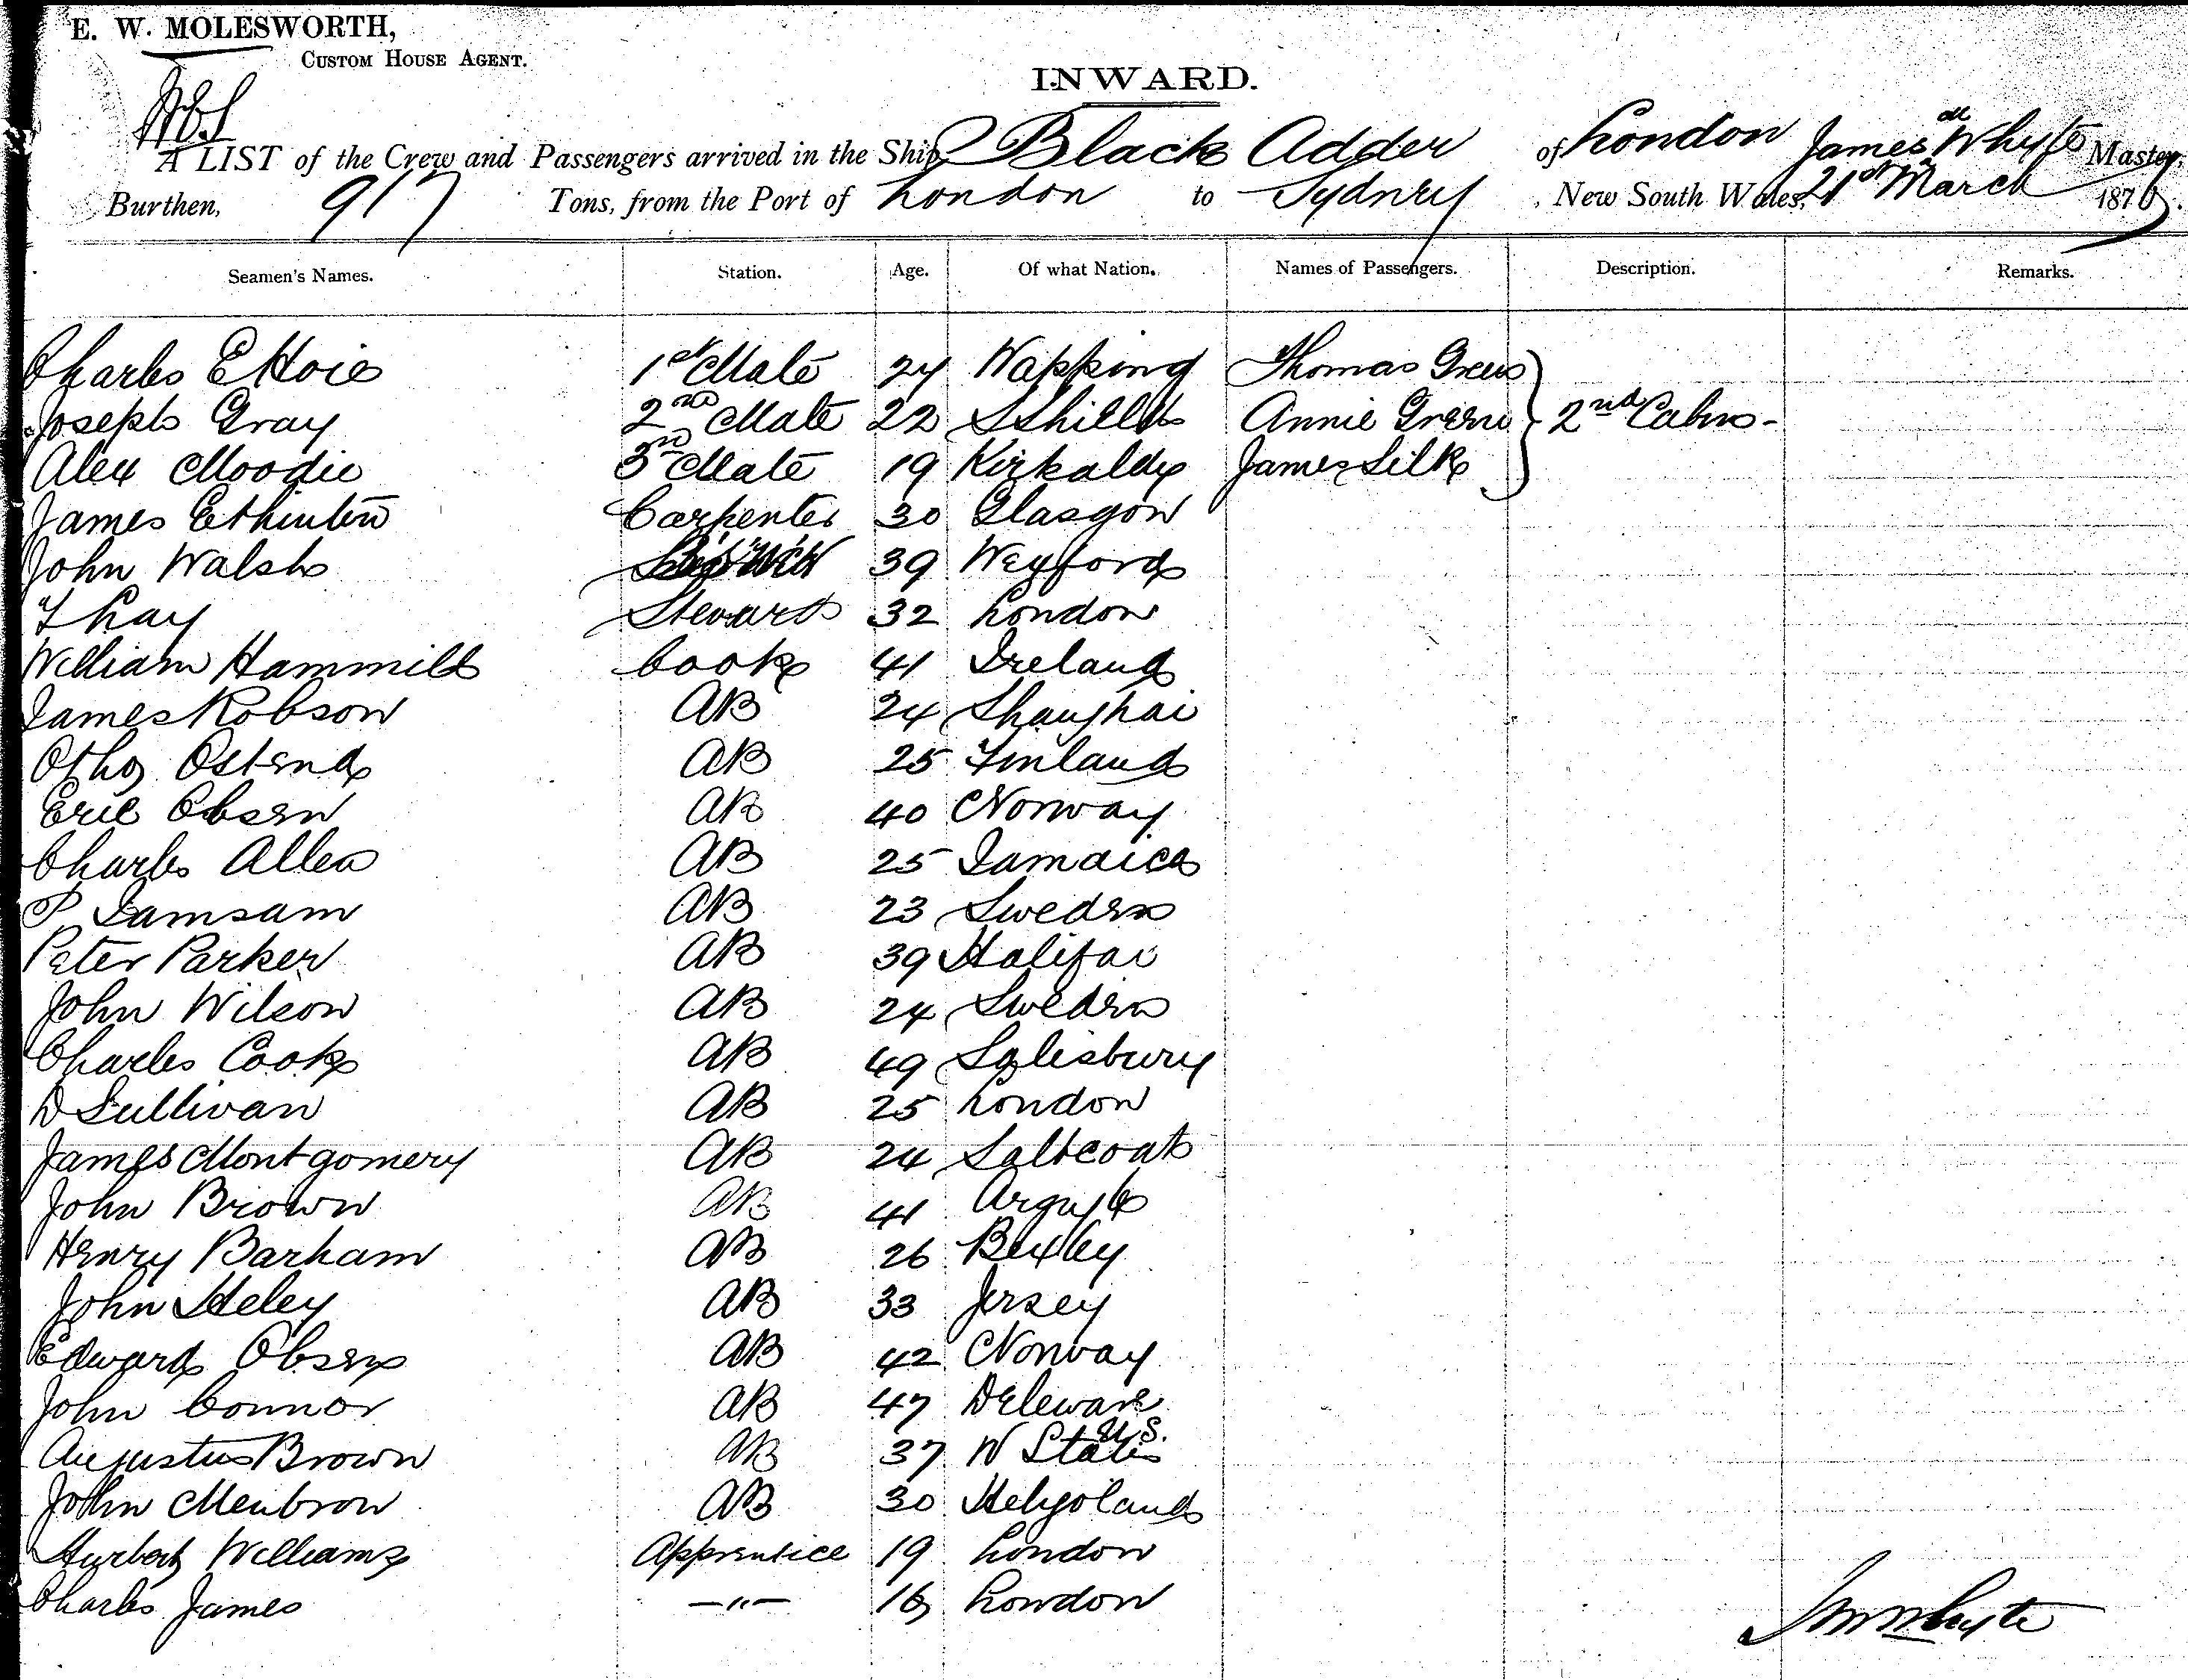 E. W. MOLESWORTH,
CUSTOM HOUSE AGENT.
INWARD.
A LIST of the Crew and Passengers arrived in the Ship Black Adder of London James Whyte Master,
Burthen, 917 Tons, from the Port of London to Sydney, New South Wales, 21st March 1876.
Seamen's Names. Station. Age. Of what Nation. Names of Passengers. Description. Remarks.
Charles E Hoie 1st Mate 24 Wapping Thomas Green
Joseph Gray 2nd Mate 22 S Shields Annie Green 2nd Cabin -
Alex Moodie 3rd Mate 19 Kirkaldy James Silk
James Carpenter 30 Glasgow
John Walsh 39 Wexford
Lay Steward 32 London
William Hammill Cook 41 Ireland
James Robson AB 24 Shanghai
Otho Ostend AB 25 Finland
Eric Olsen AB 40 Norway
Charles Allen AB 25 Jamaica
P Jamsam AB 23 Sweden
Peter Parker AB 39 Halifax
John Wilson AB 24 Sweden
Charles Cook AB 49 Salisbury
D Sullivan AB 25 London
James Montgomery AB 24 Saltcoats
John Brown AB 41 Argyle
Henry Barham AB 26 Bexley
John Heley AB 33 Jersey
Edward Olsen AB 42 Norway
John Connor AB 47 Deleware
U.S.
Augustus Brown AB 37 W States
John AB 30 Helgoland
Hurbert Williams Apprentice 19 London
Charles James —"— 16 London
Whyte